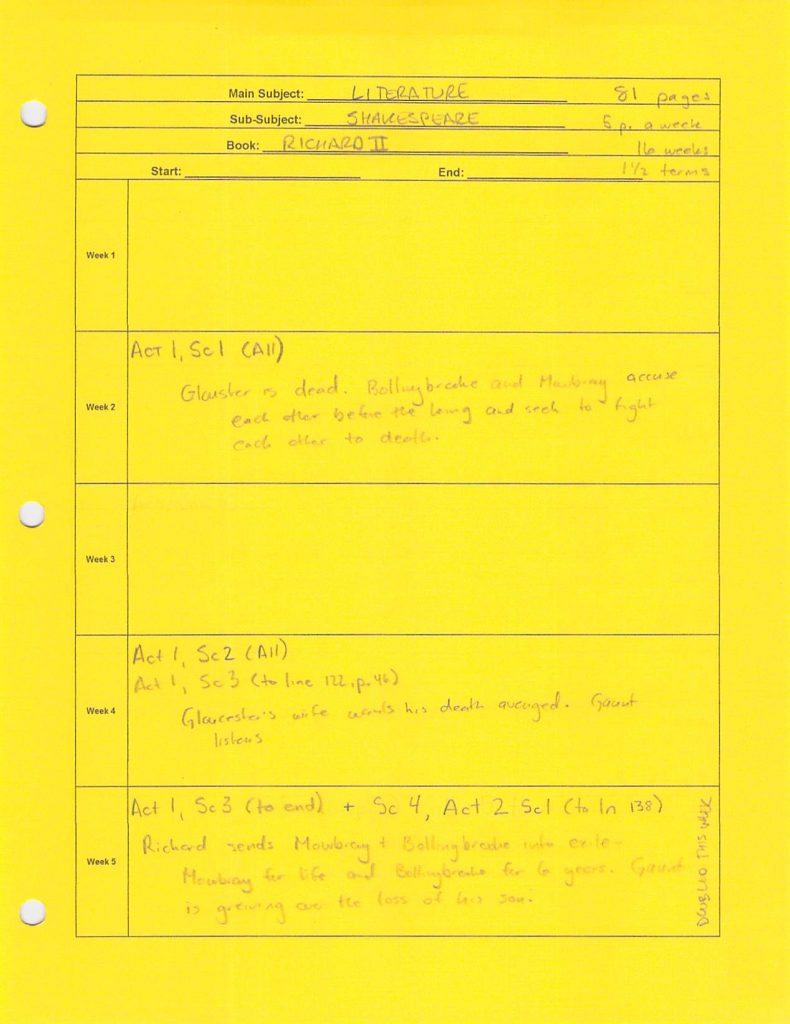 Main Subject: LITERATURE 81 pages
Sub-Subject: SHAKESPEARE 5 p. a week
Book: RICHARD II 16 weeks
Start: End: 1 1/2 terms
Week 1
Week 2
Act 1, Sc1 (All)
Glouster is dead. Bollingbroke and Mowbray accuse
each other before the king and seek to fight
each other to death.
Week 3
Week 4
Act 1, Sc2 (All)
Act 1, Sc3 (to line 122, p. 46)
Gloucester's wife wants his death avenged. Gaunt
listens
Week 5
Act 1, Sc3 (to end) + Sc 4, Act 2 Sc1 (to ln 138)
Richard sends Mowbray + Bollingbroke into exile-
Mowbray for life and Bollingbroke for 6 years. Gaunt
is greiving over the loss of his son.
DOUBLED THIS WEEK